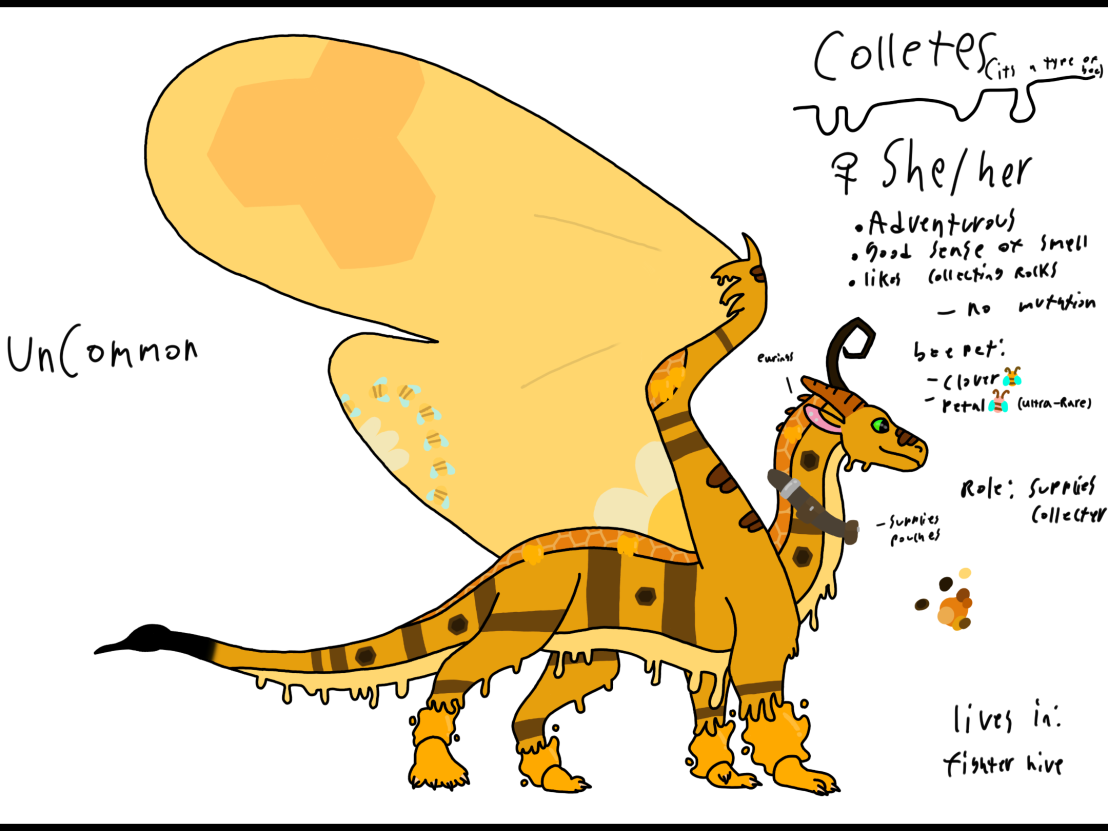 Colletes
(its a type of bee)
♀ She/her
• Adventurous
• good sense of smell
• likes collecting Rocks
- no mutation
UnCommon
bee pet:
earings
- Clover
- Petal (ultra-Rare)
Role: Supplies
Collecter
- Supplies
pouches
lives in:
fighter hive